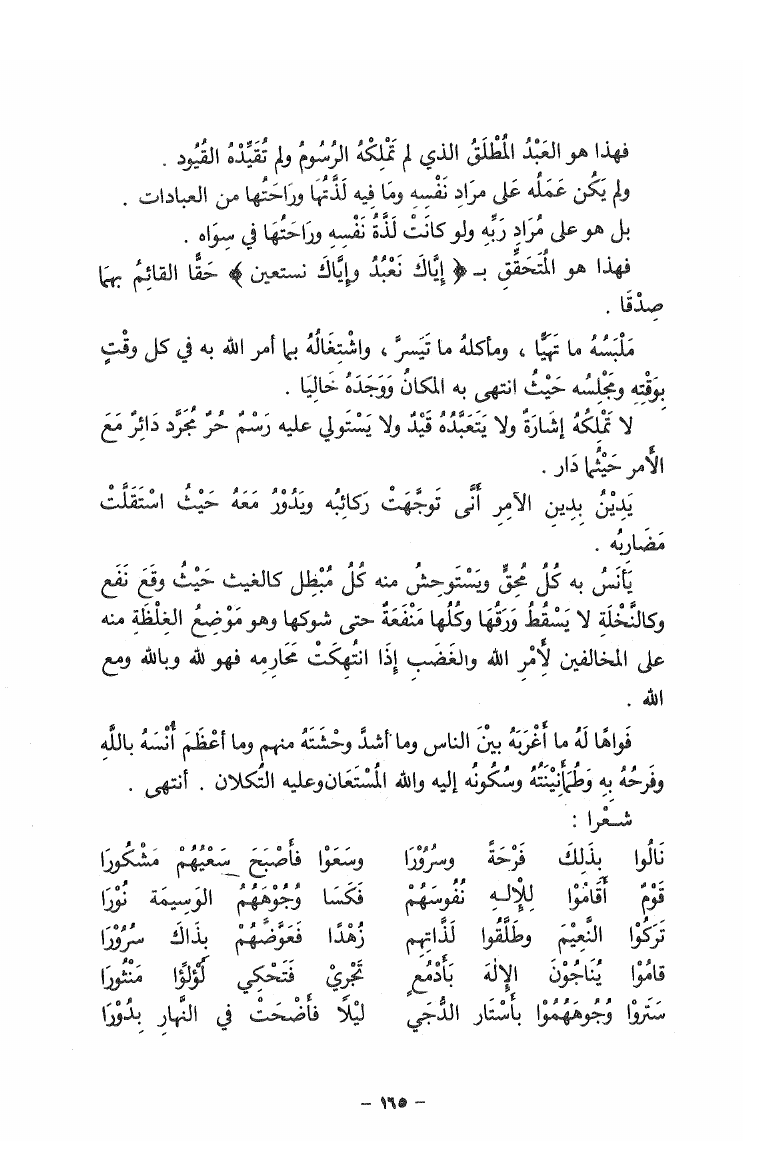 فهذا هو العَبْدُ المُطْلَقُ الذي لم تَمْلِكْهُ الرُسُومُ ولم تُقَيِّدْهُ القُيُود .
ولم يَكُن عَمَلُه عَلى مرَادِ نَفْسِهِ ومَا فيه لَذَّتُها ورَاحَتُها من العبادات .
بل هو على مُرَادِ رَبِّهِ ولو كانَتْ لَذَّةُ نَفْسِهِ ورَاحَتُهَا في سِوَاه .
فهذا هو المُتَحَقِّقِ بـ ﴿ إيَّاكَ نَعْبُدُ وإيَّاكَ نستعين ﴾ حَقًّا القائِمُ بهما
صِدْقَا .
مَلْبَسُهُ ما تَهيَّا ، ومأكلهُ ما تَيَسرَّ ، واشْتِغَالُهُ بما أمر الله به في كل وقْتٍ
بِوَقْتِهِ ومَجْلِسُه حَيْثُ انتهى به المكانُ وَوَجَدَهُ خَالِيَا .
لا تَمْلِكُهُ إشَارَةٌ ولا يَتَعَبَّدُهُ قَيْدٌ ولا يَسْتَولي عليه رَسْمٌ حُرٌ مُجَرَّد دَائِرٌ مَعَ
الأمر حَيْثُما دَار .
يَدِيْنُ بِدِينِ الآمِرِ أَنَّى تَوجَّهَتْ رَكائِبُه ويَدُوْرُ مَعَهُ حَيْثُ اسْتَقَلَّتْ
مَضَارِبُه .
يَأنَسُ به كُلُ مُحِقٍّ ويَسْتَوحِشُ منه كُلُ مُبْطِل كالغيث حَيْثُ وقَعَ نَفَع
وكالنَّخْلَةِ لا يَسْقُطُ وَرَقُهَا وكُلُها مَنْفَعَةٌ حتى شوكها وهو مَوْضِعُ الغِلْظَةِ منه
على المخالفين لِأَمْرِ الله والغَضَبِ إذَا انتُهِكَتْ مَحَارِمِه فهو لله وبالله ومع
الله .
فَواهًا لَهُ ما أَغْرَبَهُ بيْنَ الناس وما أشدَّ وحْشَتَهُ منهم وما أعْظَمَ أُنْسَهُ باللَّهِ
وفَرحُهُ بِهِ وَطُمَأْنِيْنَتُهُ وسُكُونُه إليه والله المُسْتَعَان وعليه التُكلان . أنتهى .
شـعْرا :
نَالُوا بِذَلِكَ فَرْحَةً وسُرُوْرَا وسَعَوْا فأَصْبَحَ سَعْيُهُمْ مَشْكُورَا
قَوْمٌ أَقَامُوْا لِلْإلـهِ نُفُوسَهُمْ فَكَسَا وُجُوْهَهُمُ الوَسِيمَة نُوْرَا
تَرَكُوْا النَّعِيْمَ وطَلَّقُوا لَذَّاتِهِم زُهْدًا فَعَوَّضَهُمْ بِذَاكَ سرُوْرَا
قامُوْا يُنَاجُوْنَ الإلٰهَ بَأَدْمُعٍ تَجْرِيْ فَتَحْكِي لُؤْلؤًا مَنْثُورَا
سَتَروْا وُجُوهَهُمُوْا بأَسْتَار الدُّجَي ليْلًا فأَضْحَتْ في النَّهار بِدُوْرَا
– ١٦٥ –